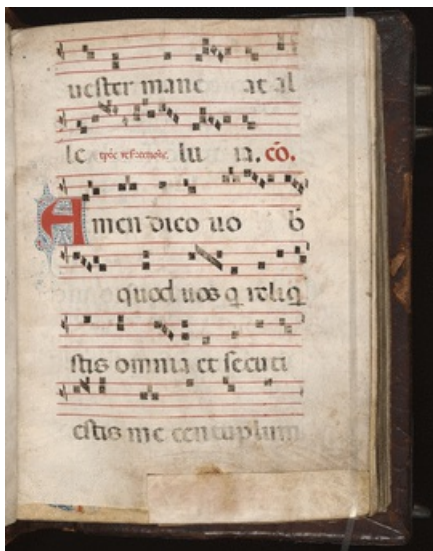 uester mane at al
le lu ia. cō.
Amen dico uo b
quod uos q̄ reliq̄
stis omnia et secuti
estis me centuplum